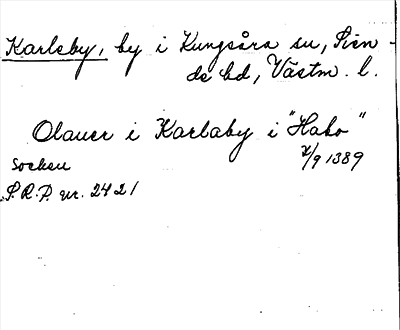 Karleby, by i Kungsåra sn, Sien-
de hd, Västm. l.
Olauer i Karlaby i "Habo"
Socken /9 1389
S.R.P. nr. 2421